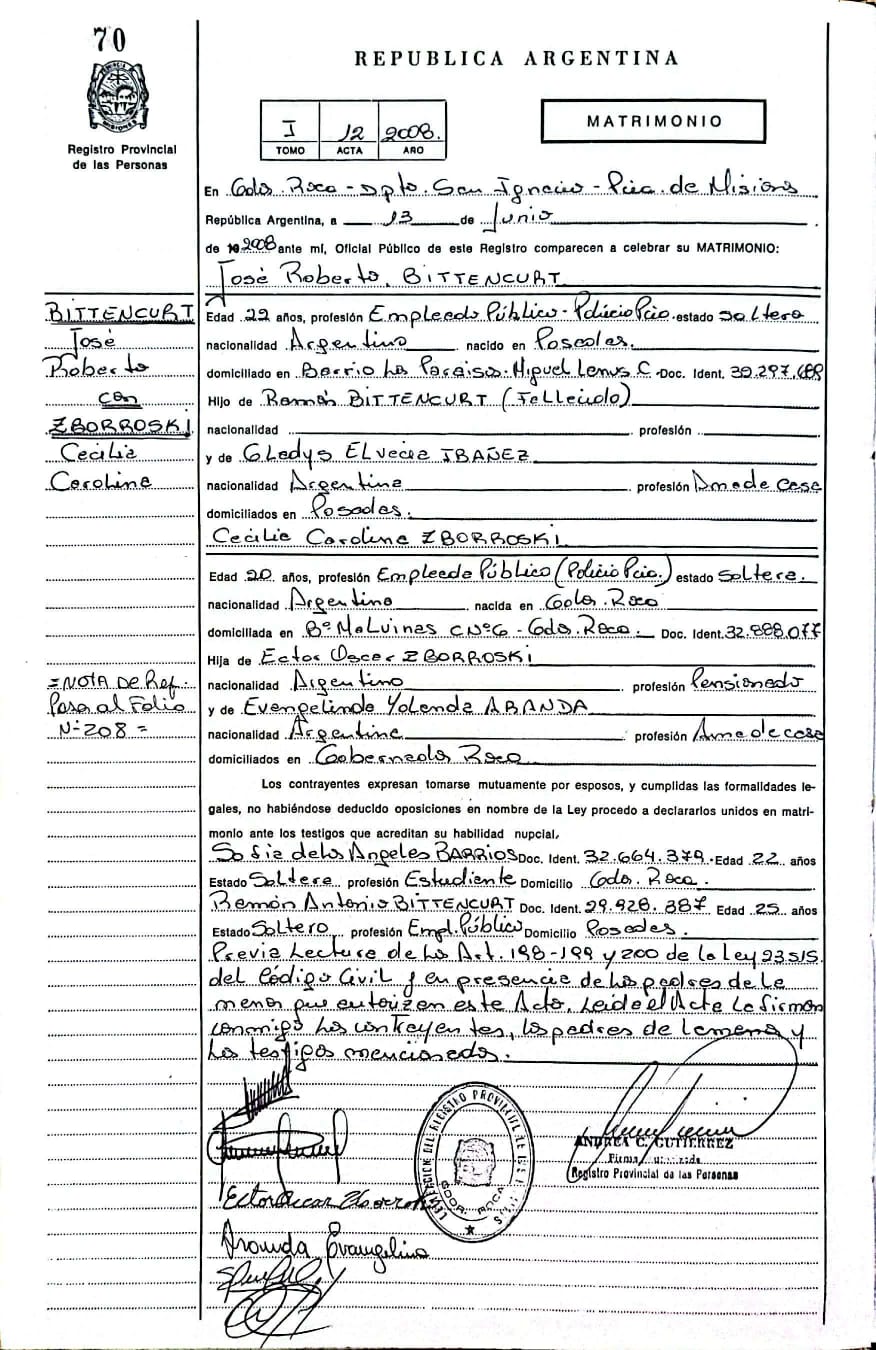 70
REPUBLICA ARGENTINA
Registro Provincial
de las Personas
I 12 2008.
TOMO ACTA AÑO
MATRIMONIO
En Gdor. Roca - Dpto. San Ignacio - Pcia. de Misiones
República Argentina, a 13 de Junio
de 2008 ante mí, Oficial Público de este Registro comparecen a celebrar su MATRIMONIO:
José Roberto BITTENCURT
BITTENCURT
José
Roberto
con
ZBORROSKI
Cecilia
Carolina
Edad 22 años, profesión Empleado Público - Policia Pcia. estado Soltero
nacionalidad Argentino nacido en Posadas.
domiciliado en Barrio Los Paraisos - Miguel Lanus C. Doc. Ident. 30.297.
Hijo de Ramón BITTENCURT (Fallecido)
nacionalidad profesión
y de Gladys ELvecia IBAÑEZ
nacionalidad Argentina profesión Ama de casa
domiciliados en Posadas.
Cecilia Carolina ZBORROSKI
Edad 20 años, profesión Empleada Público (Policia Pcia.) estado Soltera.
nacionalidad Argentina nacida en Gdor. Roca
domiciliada en Bº Malvinas C Nº 6 - Gdor. Roca. Doc. Ident. 32.888.077
Hija de Ector Oscar ZBORROSKI
nacionalidad Argentino profesión Pensionado
y de Evangelina Yolanda ARANDA
nacionalidad Argentina profesión Ama de casa
domiciliados en Gobernador Roca
=NOTA De Ref.:
Pasa al Folio
Nº 208 =
Los contrayentes expresan tomarse mutuamente por esposos, y cumplidas las formalidades le-
gales, no habiéndose deducido oposiciones en nombre de la Ley procedo a declararlos unidos en matri-
monio ante los testigos que acreditan su habilidad nupcial,
Sofia de los Angeles BARRIOS Doc. Ident. 32.664.379 - Edad 22 años
Estado Soltera profesión Estudiante Domicilio Gdor. Roca.
Ramón Antonio BITTENCURT Doc. Ident. 29.928.387 Edad 25 años
Estado Soltero profesión Empl. Público Domicilio Posadas.
Previa Lectura de los Art. 198-199 y 200 de la Ley 23515.
del Código Civil y en presencia de los padres de la
menor que autorizan este Acto, Leido el Acta la firman
conmigo los contrayentes, los padres de la menor y
los testigos mencionados.
ANDREA C. GUTIERREZ
Registro Provincial de las Personas
GDOR. ROCA
Ector Oscar Zborroski
Aranda Evangelina